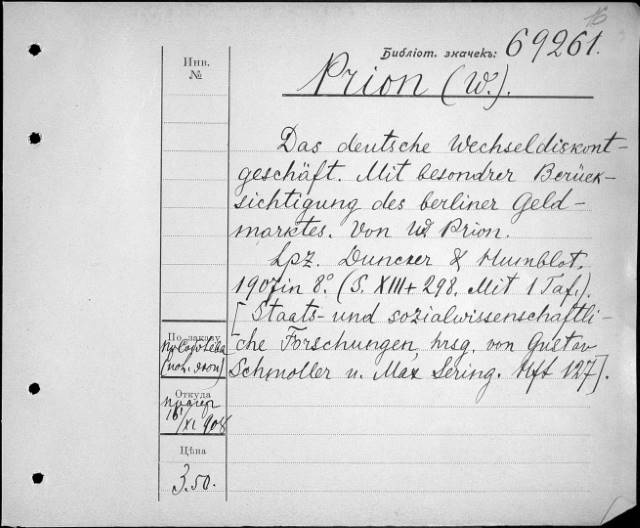 16
Библіот. значекъ: 69261.
Инв.
№
Prion (W.).
Das deutsche Wechseldiskont-
geschäft. Mit besondrer Berück-
sichtigung des berliner Geld-
marktes. Von W Prion.
Lpz. Duncker & Humblot.
1907 in 8º. (S. XIII + 298. Mit 1 Taf.).
[Staats- und sozialwissenschaftli-
che Forschungen, hrsg. von Gustav
Schmoller u. Max Sering. Hft 127].
По заказу
Откуда
16/XI 908
Цѣна
3.50.